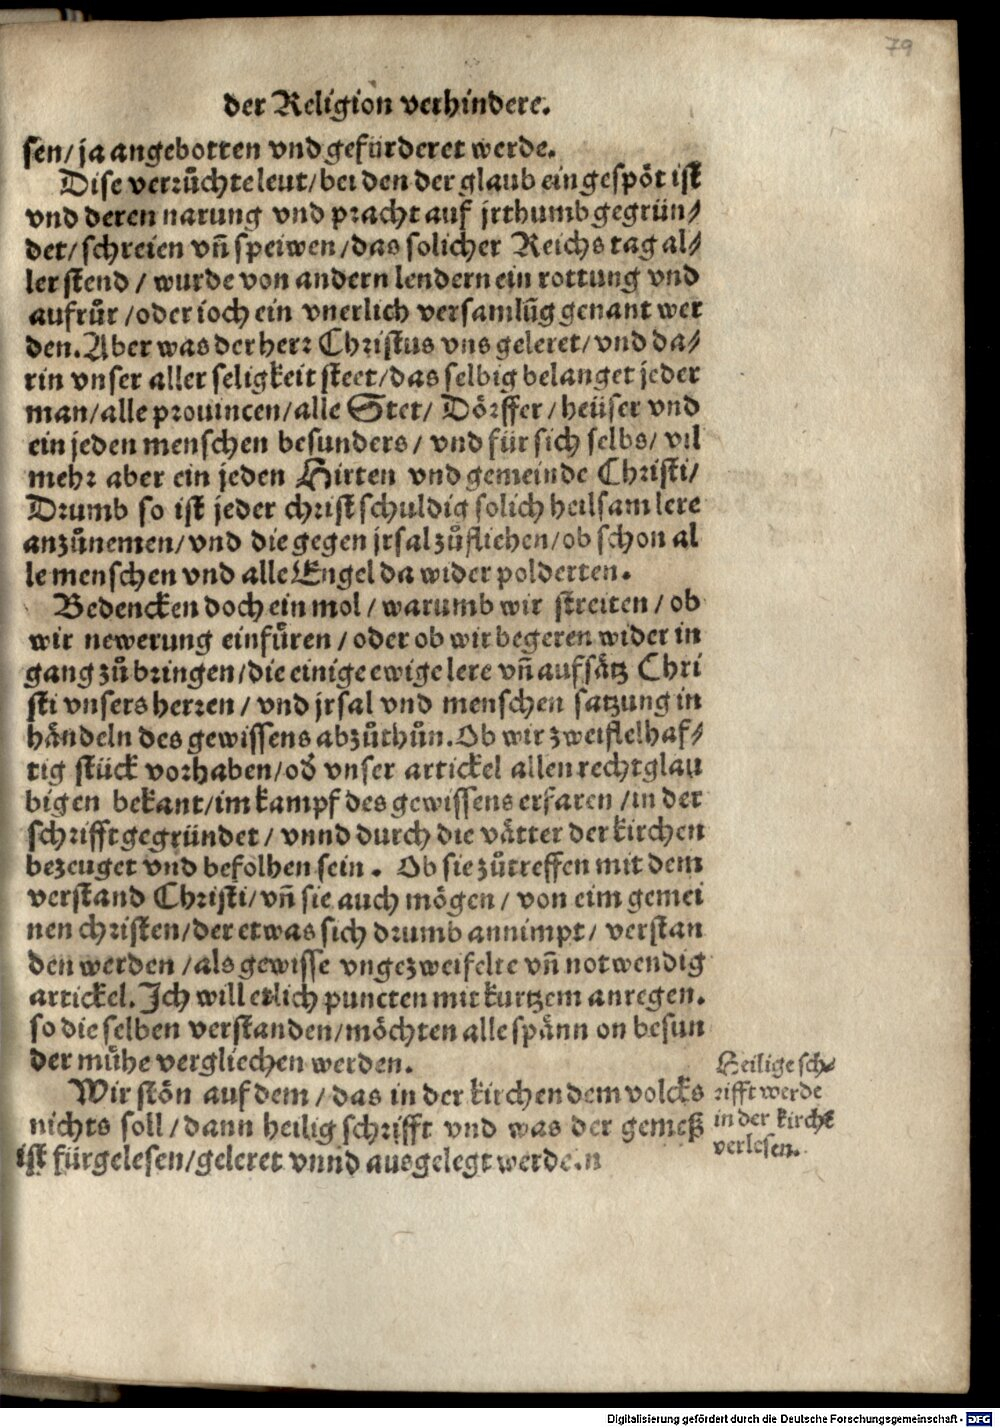 79
der Religion verhindere.
sen/ ja angebotten vnd gefürderet werde.
Dise verrůchte leut/ bei den der glaub ein gespöt ist
vnd deren narung vnd pracht auf jrthumb gegrün/
det/ schreien vñ speiwen/ das solicher Reichs tag al/
ler stend / wurde von andern lendern ein rottung vnd
aufrůr / oder ioch ein vnerlich versamlũg genant wer
den. Aber was der herr Christus vns geleret/ vnd da/
rin vnser aller seligkeit steet/ das selbig belanget jeder
man/ alle prouincen/ alle Stet/ Dörffer / heüser vnd
ein jeden menschen besunders / vnd für sich selbs/ vil
mehr aber ein jeden Hirten vnd gemeinde Christi/
Drumb so ist jeder christ schuldig solich heilsam lere
anzůnemen/ vnd die gegen jrsal zůfliehen/ ob schon al
le menschen vnd alle Engel da wider polderten.
Bedencken doch ein mol / warumb wir streiten / ob
wir newerung einfüren / oder ob wir begeren wider in
gang zů bringen/ die einige ewige lere vñ aufsätz Chri
sti vnsers herren / vnd jrsal vnd menschen satzung in
händeln des gewissens abzůthůn. Ob wir zweiflelhaf/
tig stück vorhaben/ oď vnser artickel allen rechtglau
bigen bekant/ im kampf des gewissens erfaren / in der
schrifft gegründet / vnnd durch die vätter der kirchen
bezeuget vnd befolhen sein. Ob sie zůtreffen mit dem
verstand Christi/ vñ sie auch mögen / von eim gemei
nen christen/ der etwas sich drumb annimpt/ verstan
den werden / als gewisse vngezweifelte vñ notwendig
artickel. Ich will etlich puncten mit kurtzem anregen.
so die selben verstanden/ möchten alle spänn on besun
der mühe vergliechen werden.
Wir stön auf dem / das in der kirchen dem volcks
nichts soll / dann heilig schrifft vnd was der gemeß
ist fürgelesen/ geleret vnnd ausgelegt werde.n
Heilige sch/
rifft werde
in der kirche
verlesen.
Digitalisierung gefördert durch die Deutsche Forschungsgemeinschaft - DFG